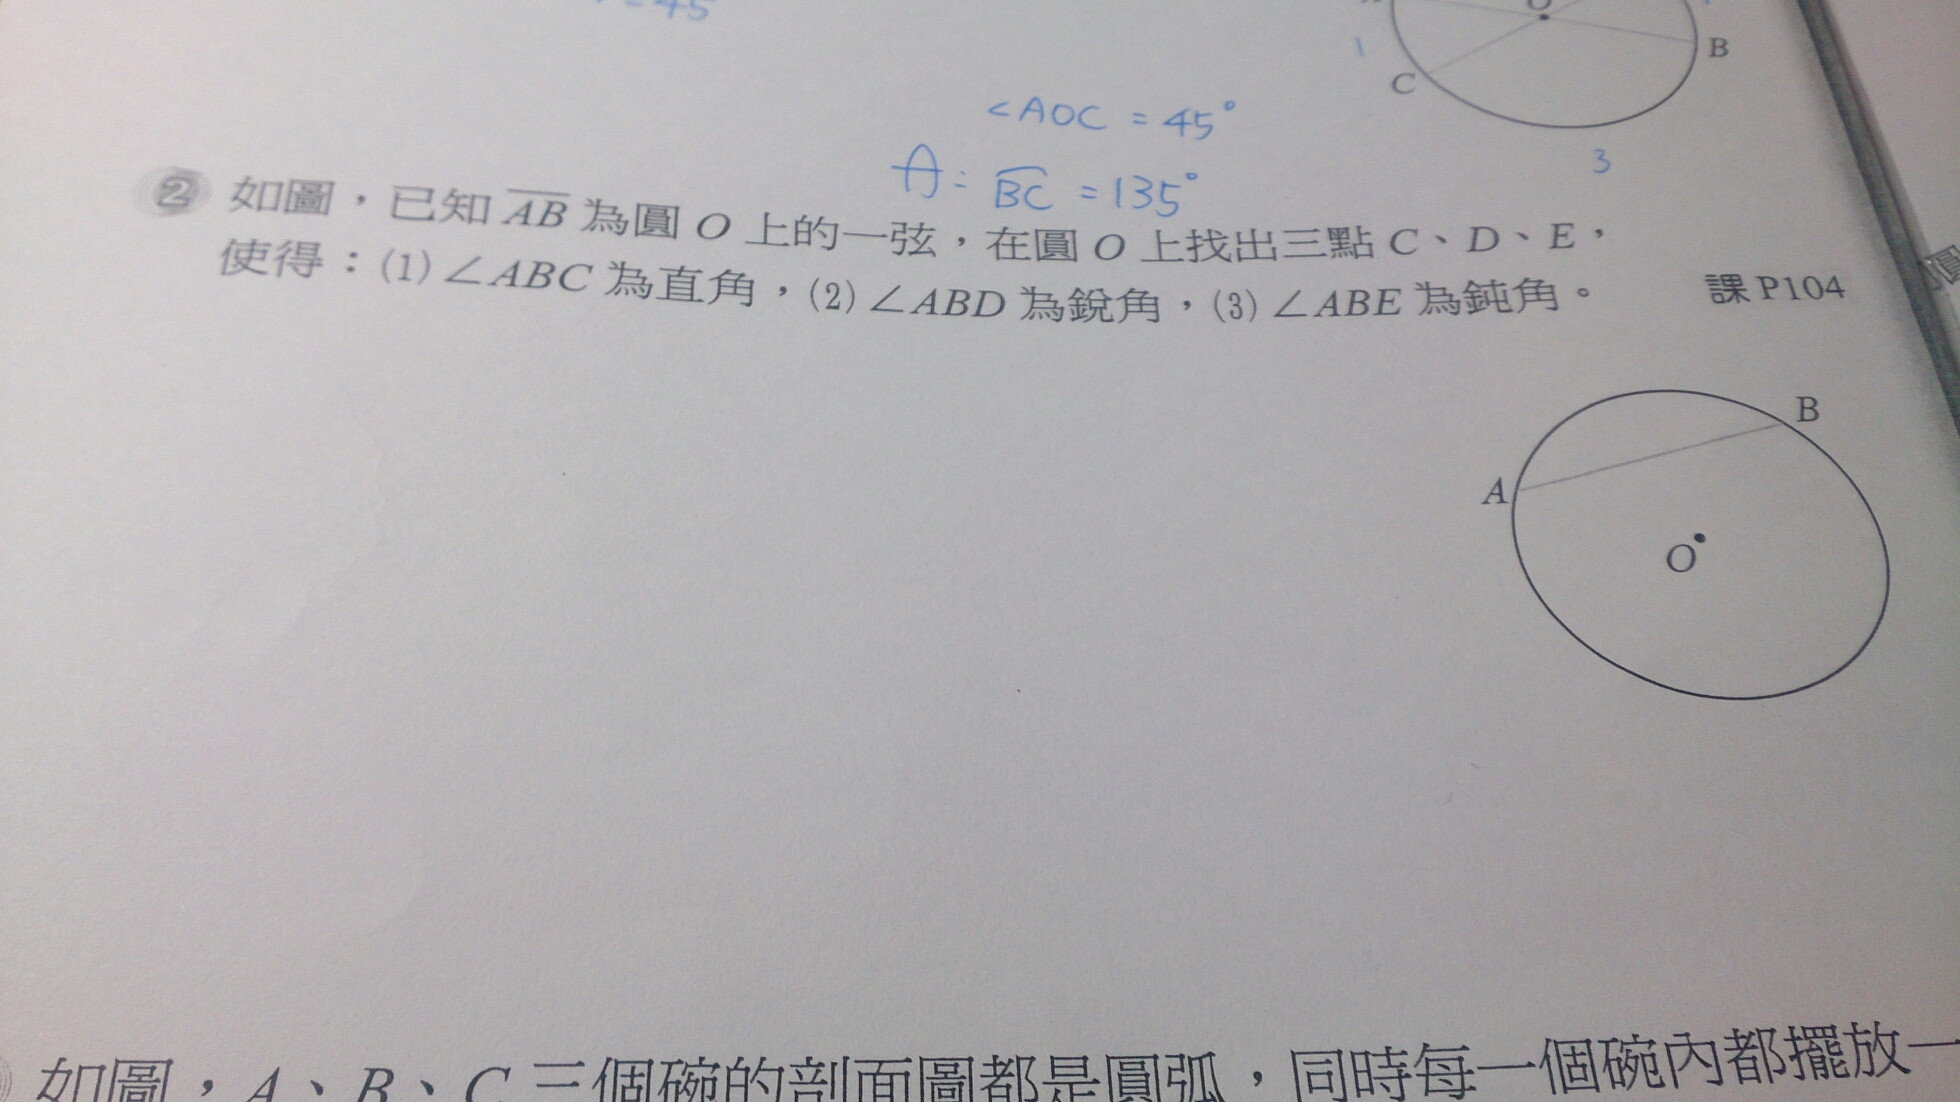 = 45
O
B
C
1
3
∠AOC = 45°
A: BC = 135°
2 如圖，已知 AB 為圓 O 上的一弦，在圓 O 上找出三點 C、D、E，
使得：(1) ∠ABC 為直角，(2) ∠ABD 為銳角，(3) ∠ABE 為鈍角。
課 P104
圓
B
A
O
如圖，A、B、C 三個碗的剖面圖都是圓弧，同時每一個碗內都擺放一